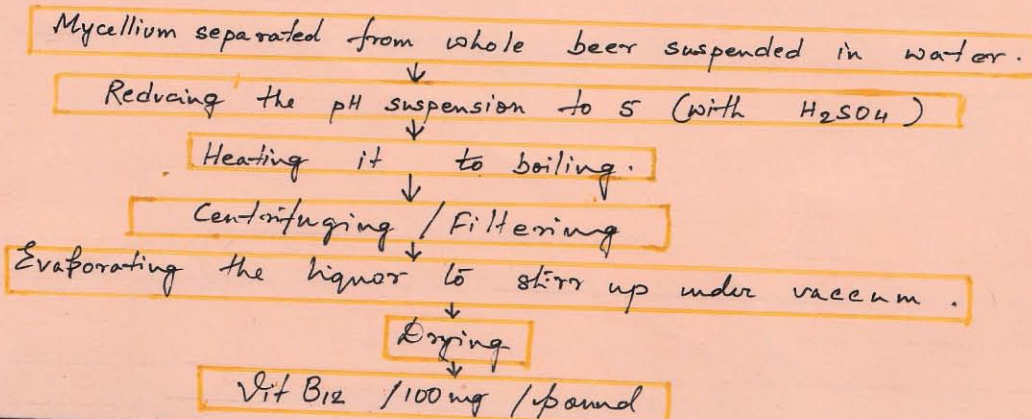 Mycellium separated from whole beer suspended in water.
↓
Reducing the pH suspension to 5 (with H2SO4)
↓
Heating it to boiling.
↓
Centrifuging / Filtering
↓
Evaporating the liquor to stirr up under vaccum.
↓
Drying
↓
Vit B12 /100 mg /pound